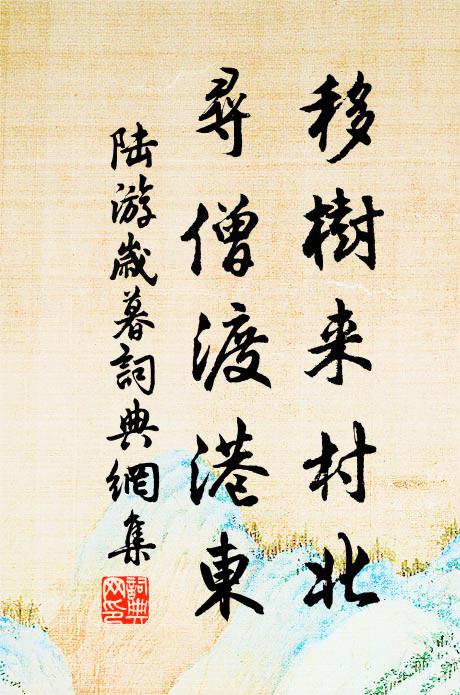 移樹来村北
尋僧渡港東
陸游歲暮詞典網集
詞典